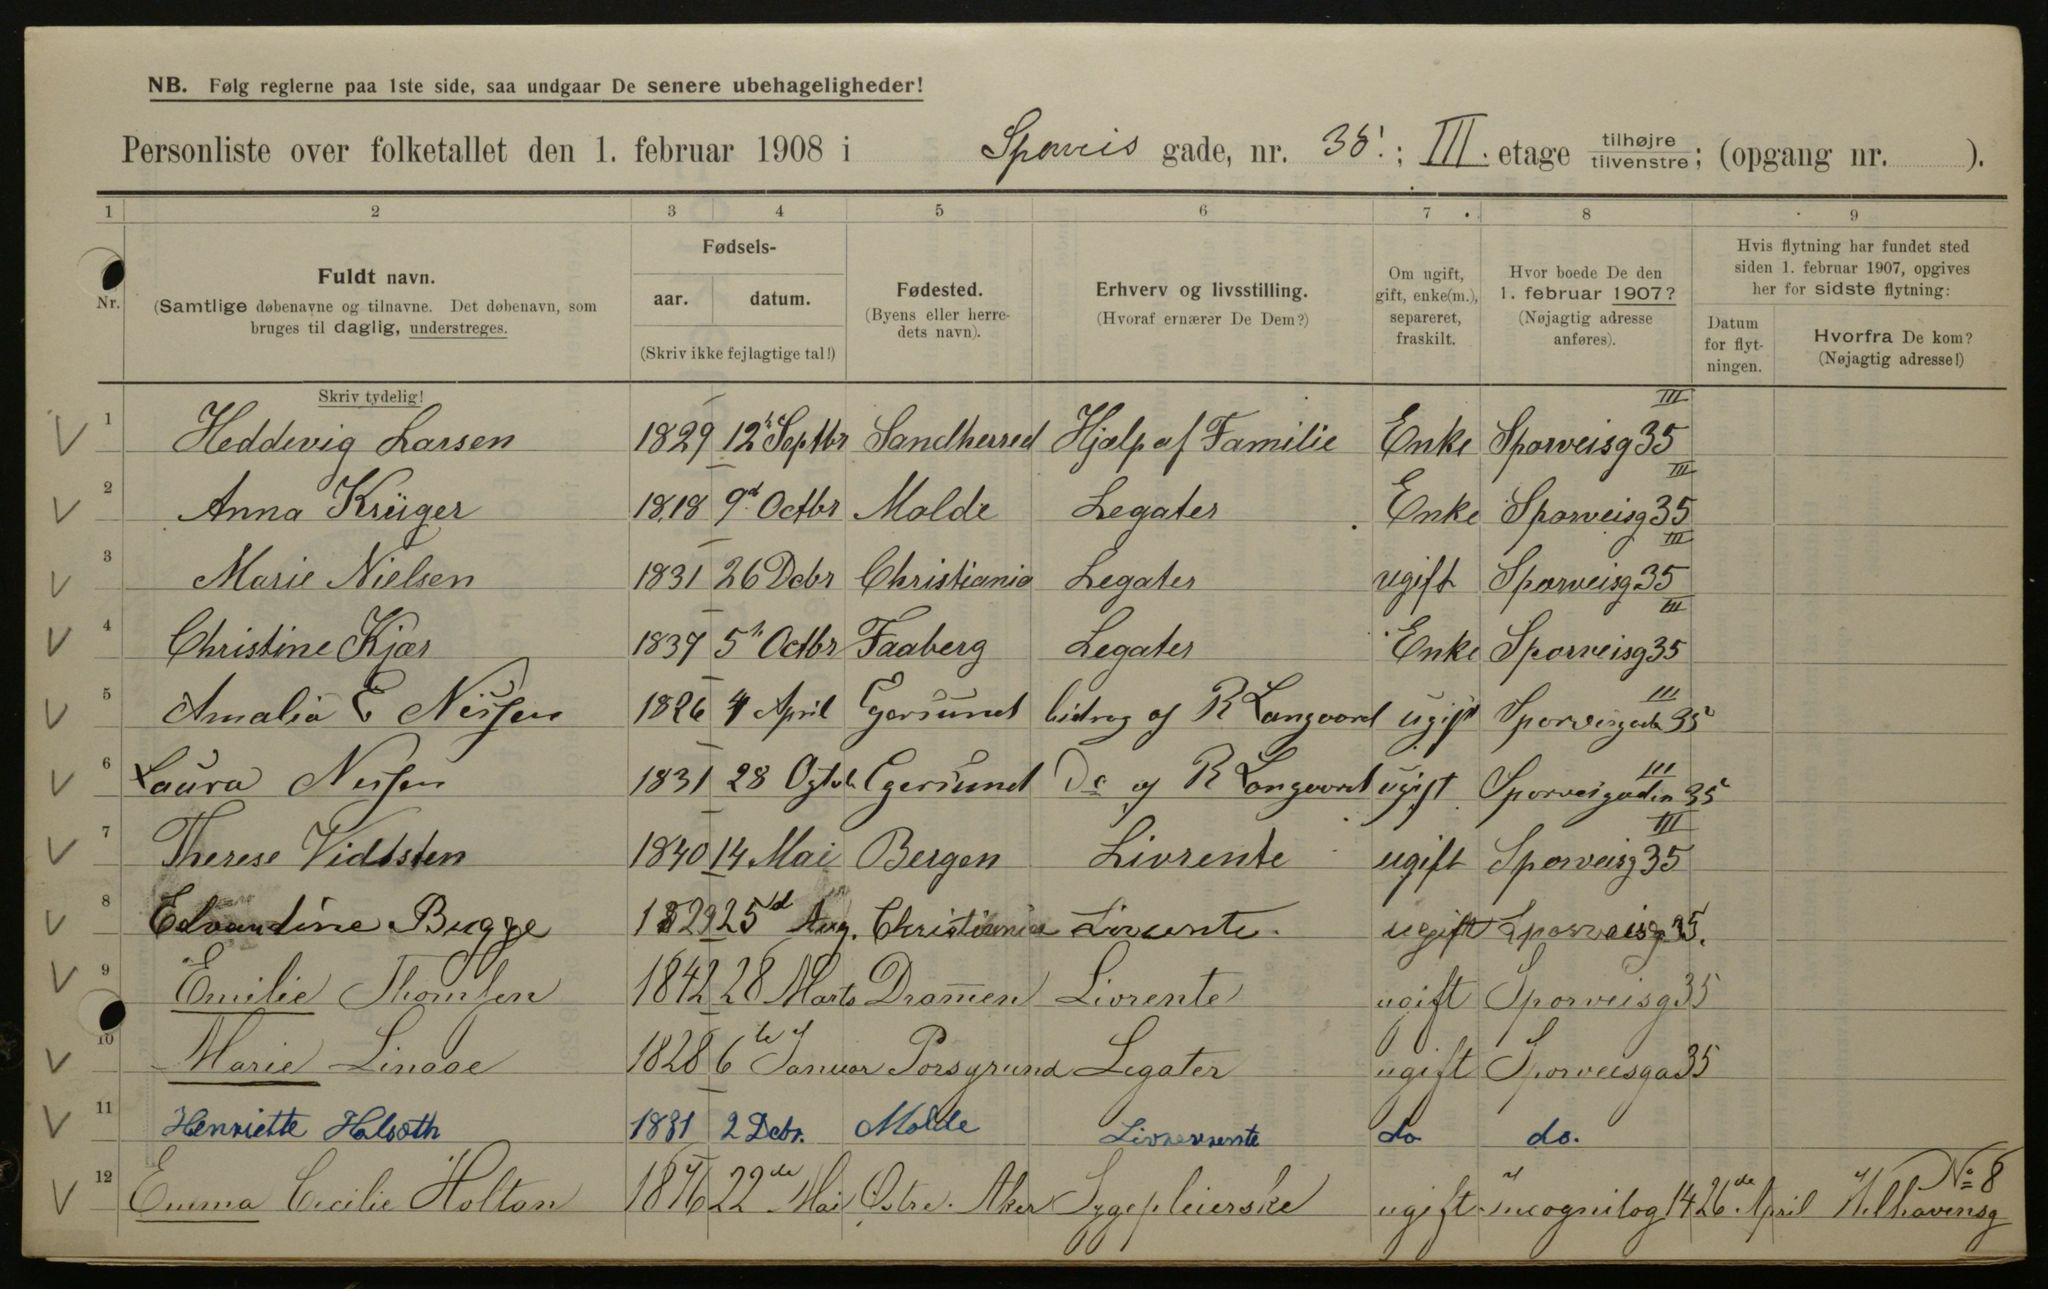 NB. Følg reglerne paa 1ste side, saa undgaar De senere ubehageligheder!
Personliste over folketallet den 1. februar 1908 i Sporveis gade, nr. 35.; III. etage tilhøjre tilvenstre; (opgang nr. ).
1 2 3 4 5 6 7 8 9
Nr.
Fuldt navn.
(Samtlige døbenavne og tilnavne. Det døbenavn, som
bruges til daglig, understreges.
Skriv tydelig!
Fødsels-
aar. datum.
(Skriv ikke fejlagtige tal!)
Fødested.
(Byens eller herre-
dets navn).
Erhverv og livsstilling.
(Hvoraf ernærer De Dem?)
Om ugift,
gift, enke(m.),
separeret,
fraskilt.
Hvor boede De den
1. februar 1907?
(Nøjagtig adresse
anføres).
Hvis flytning har fundet sted
siden 1. februar 1907, opgives
her for sidste flytning:
Datum
for flyt-
ningen.
Hvorfra De kom?
(Nøjagtig adresse!)
1 Heddevig Larsen 1829 12 Septbr Sandherred Hjælp af Familie Enke Sporveisg 35 III
2 Anna Krüger 1818 9d Octbr Molde Legater Enke Sporveisg 35 III
3 Marie Nielsen 1831 26 Dcbr Christiania Legater ugift Sporveisg 35 III
4 Christine Kjær 1837 5 Octbr Faaberg Legater Enke Sporveisg 35 III
5 Amalia E Nissen 1826 4 April Egersund bidrag af R Langaard ugift Sporveisgade 35 III
6 Laura Nissen 1831 28 Egersund Do af R Langaard ugift Sporveisgaden 35 III
7 Therese Vidsten 1840 14 Mai Bergen Livrente ugift Sporveisg 35 III
8 Bugge 1829 25d Aug. Christiania Livrente. ugift Sporveisg 35.
9 Emilie Thomsen 1842 28 Marts Drammen Livrente ugift Sporveisg 35
10 Marie Linaae 1828 6te Januar Porsgrund Legater ugift Sporveisga 35
11 Henriette 1831 2 Dcbr. Molde Livrente do do.
12 Emma Cecilie Holtan 1876 22de Mai Østre Aker Sygepleierske ugift Incognitog 14 26de April Welhavensg No 8